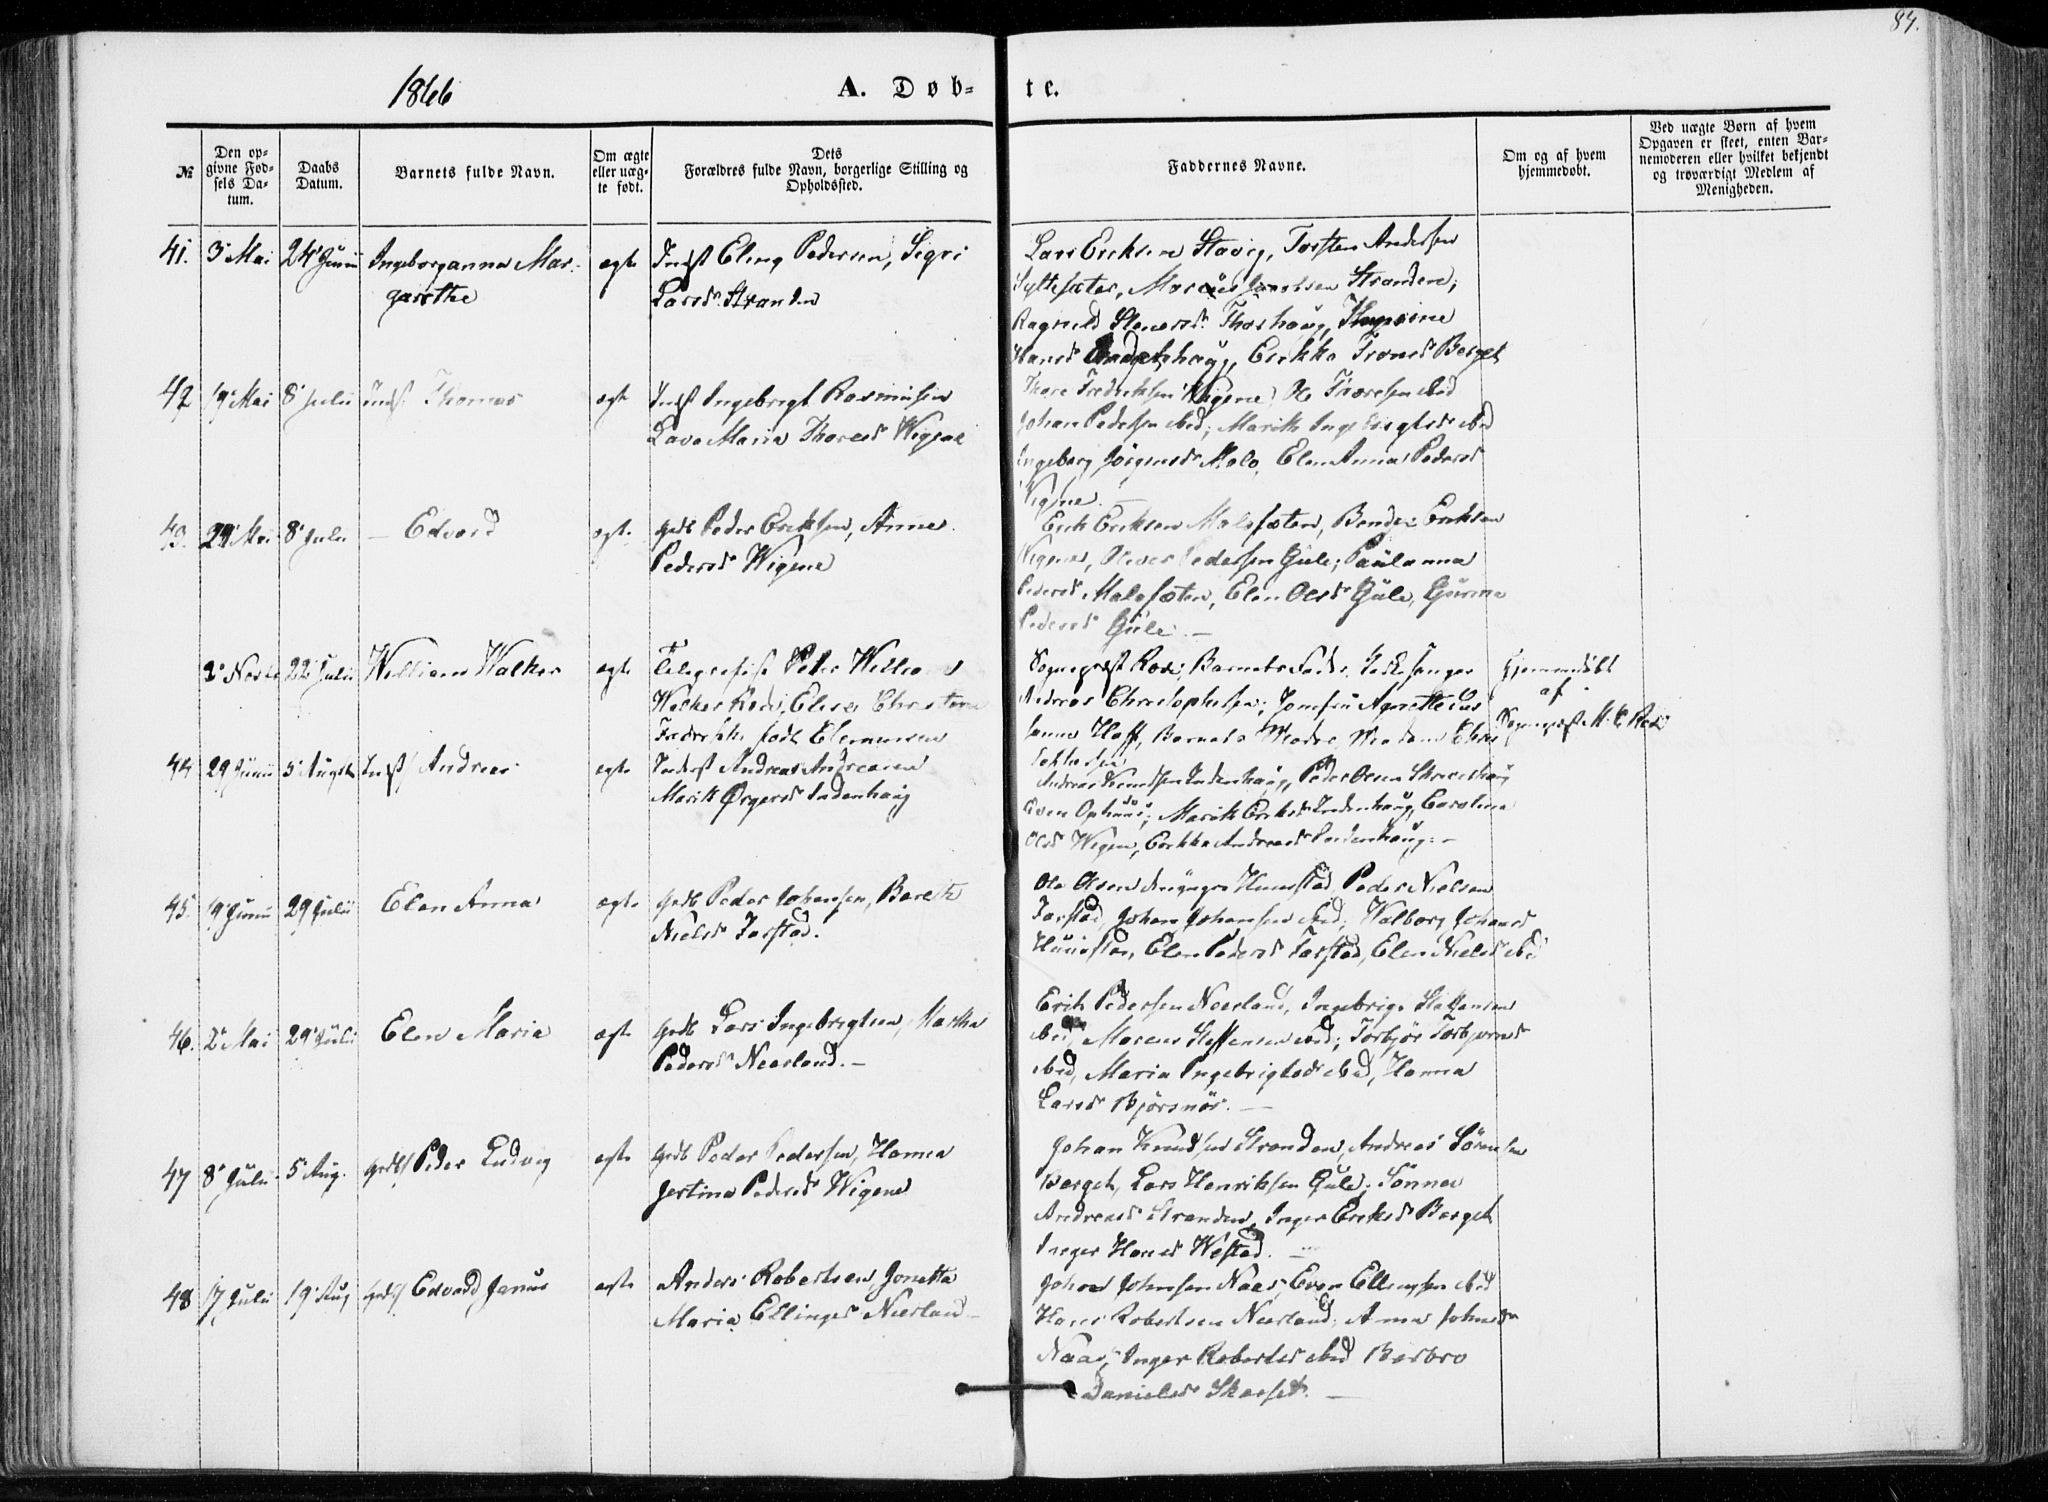 84.
1866
A. Døb-
te.
№
Den op-
givne Fød-
sels Da-
tum.
Daabs
Datum.
Barnets fulde Navn.
Om ægte
eller uæg-
te født.
Dets
Forældres fulde Navn, borgerlige Stilling og
Opholdssted.
Faddernes Navne.
Om og af hvem
hjemmedøbt.
Ved uægte Børn af hvem
Opgaven er skeet, enten Bar-
nemoderen eller hvilket bekjendt
og troværdigt Medlem af
Menigheden.
41. 3 Mai 24 Juni Ingeborganna Mar-
garethe
ægte Indst Eling Pedersen, Sigri
Larsd. Stranden
Lars Eriksen Stavig, Torsten Andersen
Syltesæter, Marcus Stranden;
Ragnild
Hansd. Erikka Berget
42 19 Mai 8 Juli Indst Thomas
ægte Indst Ingebrigt Rasmusen
Maria Thoresd Wigene
Thore Fredriksen Wigene, Ole Thoresen ibd
Johan Pedersen ibd; Marith Ingebrigtsd ibd
Ingeborg Jörgensd Malo, Elen Anna Pedersd
Vigene. —
43. 29 Mai 8 Juli — Edvard
ægte Gdbr Peder Eriksen, Anne
Pedersd Wigene
Erik Eriksen Malosæter, Eriksen
Vigene, Pedersen Gule; Paulanna
Pedersd Malosæter, Elen Olsd Gule, Gurine
Pedersd Gule. —
22 Juli William Walker
ægte Telegrafist Peder William
Walker Elise Christine
født Clemensen
Sogneprest Rode, Barnets Fader, Kirkesanger
Andreas Christophersen; Jomfru Agnethe
Hoff, Barnets Moder, Madam
Hjemmedøbt
af
Sogneprest
44 29 Juni 5 August Indst/ Andreas
ægte Inderst Andreas Andreasen
Marith Indenhaug
Andreas Knudsen Indenhaug, Peder Olsen
Even; Marith Eriksd Indenhaug, Caroline
Olsd Wigen, Erikka Andreasd Indenhaug. —
45. 19 Juni 29 Juli Elen Anna
ægte Gdbr Peder Johansen, Bereth
Nielsd Tarstad.
Ole Olsen Hunstad, Peder Nielsen
Tarstad, Johan Johansen ibid; Walborg Johansd
Hunstad, Elen Pedersd Tarstad, Elen Nielsd ibd
46. 2 Mai 29 Juli Elen Maria
ægte Gdbr Lars Ingebrigtsen, Martha
Pedersd Neerland. —
Erik Pedersen Neerland, Ingebrigt Steffensen
ibid, Marcus Steffensen ibid; Torbjör Torbjörnsd
ibid, Maria Ingebrigtsd ibid, Hanna
Larsd Björnör. —
47 8 Juli 5 Aug. Gdbr/ Peder Ludvig
ægte Gdbr Peder Pedersen, Hanna
Jertina Pedersd Wigene
Johan Knudsen Stranden, Andreas Sörensen
Berget, Lars Henriksen Gule; Sönnev
Andreasd Stranden, Inger Eriksd Berget
Inger Hansd Westad. —
48 17 Juli 19 Aug Gdbr/ Edvard Janus
ægte Anders Robertsen, Jonetta
Maria Ellingsd Neerland —
Johan Johnsen Naas, Even Ellingsen ibid
Hans Robertsen Neerland; Anna Johnsd
Naas, Inger Robertsd ibid Barbro
Danielsd Skarset. —